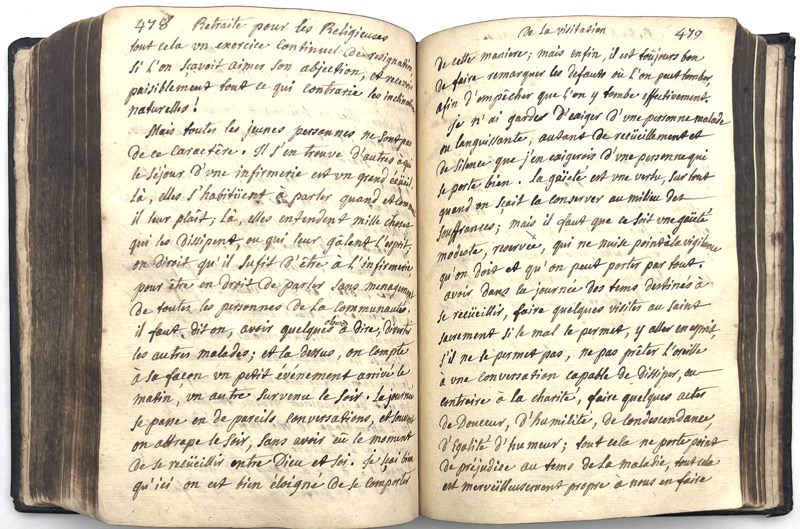 478 Retraite pour les Religieuses
tout cela vn exercice continuel de resignation,
si l'on sçavoit aimer son abjection, et recevoir
paisiblement tout ce qui contrarie les inclinations
naturelles!
Mais toutes les jeunes personnes ne sont pas
de ce caractére. Il s'en trouve d'autres à qui
le séjour d'vne infirmerie est vn grand ecüeil.
Là, elles s'habitüent à parler quand et comme
il leur plait; là, elles entendent mille choses
qui les dissipent, ou qui leur gâtent l'esprit;
on diroit qu'il sufit d'être à l'infirmerie
pour être en droit de parler sans menagement
de toutes les personnes de la Communauté.
il faut, dit on, avoir quelques choses à dire, divertir
les autres malades; et la dessus, on compte
à sa façon vn petit événement arrivé le
matin, vn autre survenu le soir. La journée
se passe en de pareils conversations, et souvent
on attrape le soir, sans avoir eû le moment
de se recüeillir entre Dieu et soi. Je sçai bien
qu'ici on est bien éloigné de se comporter
De la visitation 479
de cette maniere; mais enfin, il est toûjours bon
de faire remarquer les défauts où l'on peut tomber,
afin d'empêcher que l'on y tombe effectivement.
Je n'ai garde d'exiger d'vne personne malade
ou languissante, autant de recüeillement et
de silence que j'en exigerois d'vne personne qui
se porte bien. La gaïeté est vne vertu, sur tout
quand on sçait la conserver au milieu des
souffrances; mais il faut que ce soit vne gaïeté
modeste, reservée, qui ne nuise point à la vigilance
qu'on doit et qu'on peut porter par tout.
avoir dans la journée des tems destinés à
se recüeillir, faire quelques visites au saint
sacrement si le mal le permet, y aller en esprit,
s'il ne le permet pas, ne pas prêter l'oreille
à vne conversation capable de dissiper, ou
contraire à la charité, faire quelques actes
de Douceur, d'humilité, de condescendance,
d'Egalité d'humeur; tout cela ne porte point
de préjudice au tems de la maladie, tout cela
est merveilleusement propre à nous en faire